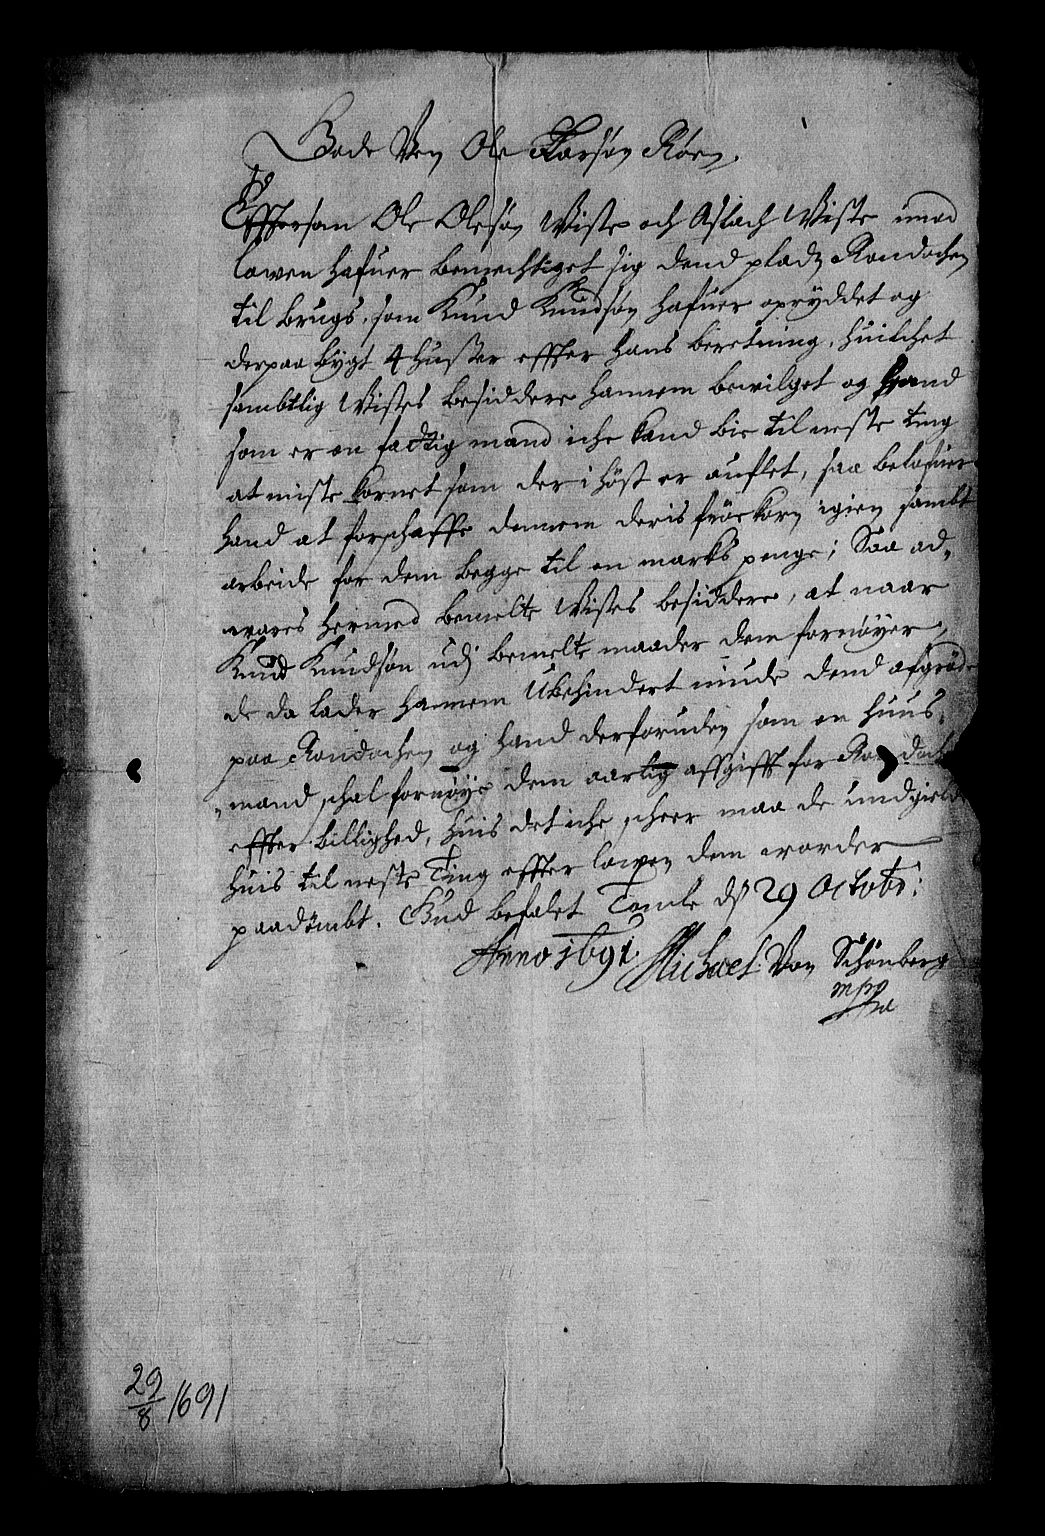 Gode Ven Ole Torsøn Røen.
Effterson Ole Olesøn Wiste och Aslach Wiste imod
lowen hafuer bemechtiget sig dend pladz Rondochen
til brugs, som Knud Knudsøn hafuer opryddet og
derpaa bygt 4 huszer effter hans beretning, huilchet
sambtlig Wistes besiddere hannem bewilget og hand
som er en fattig mand iche kand bie til neste ting
at miste kornet som der i höst er auflet, saa belofuer
hand at forschaffe dennem deris fröekorn igien sambt
arbeide for dem begge til en marks penge; Saa ad„
wares hermed bemelte Wistes besiddere, at naar
Knud Knudsøn udj bemelte maader dem fornøyer,
de da lader hannem Ubehindert niude dend afgröde
paa Rondochen og hand derforuden som en huus„
„mand schal fornøye dem aarlig affgifft for Rondoch
effter billighed, huis det iche scheer maa de undgielde
huis til neste Ting effter lowen dem worder
paadömbt. Gud befalet Tomle ds 29 Octobr:
Anno 1691. Michael Von Schönberg
mpp
29/8 1691